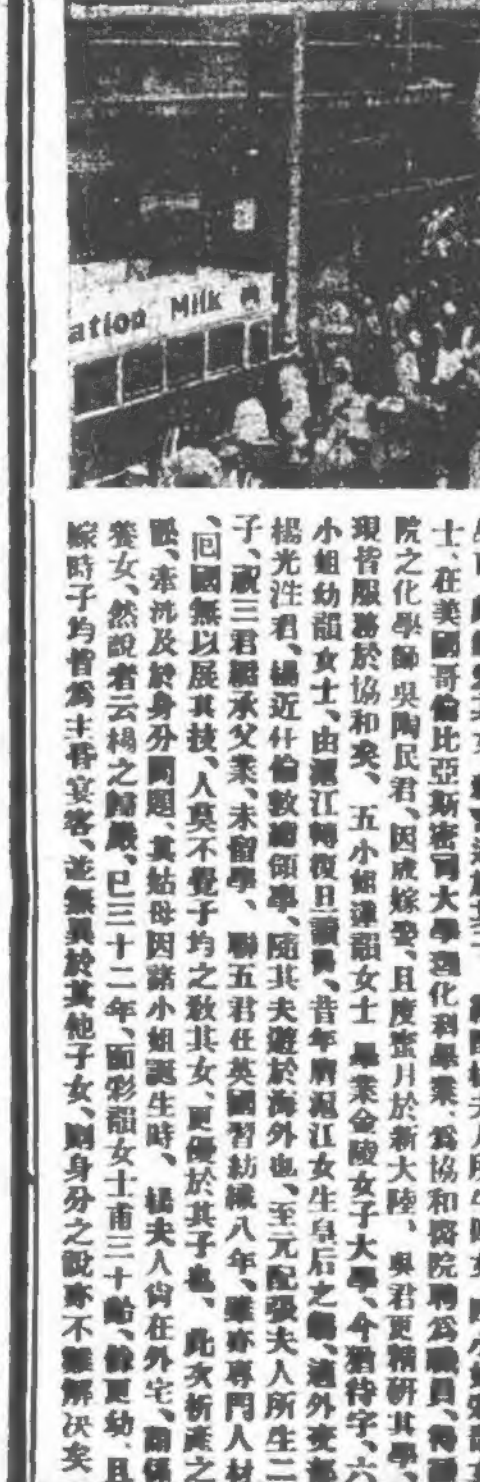 ation Milk
士、在美國哥倫比亞斯密司大學理化科畢業、爲協和醫院聘爲職員、
院之化學師吳陶民君、因成嫁娶、且度蜜月於新大陸、與君更精研其學
現皆服務於協和矣、五小姐蓮韻女士 畢業金陵女子大學、今猶待字、六
小姐幼韻女士、由滬江轉復旦讀書、昔年膺滬江女生皇后之 、適外交
楊光泩君、楊近任倫敦總領事、隨其夫遊於海外也、至元配張夫人所生二
子、祝三君繼承父業、未留學、聯五君在英國習紡織八年、雖亦專門人材
、囘國無以展其技、人莫不覺子均之教其女、更優於其子也、此次析產之
訟、牽涉及於身分問題、其姑母因諸小姐誕生時、楊夫人尙在外宅、
養女、然說者云楊之歸嚴、已三十二年、而彩韻女士甫三十齡、餘更幼、且
嫁時子均皆爲主昏宴客、並無異於其他子女、則身分之說亦不難解決矣